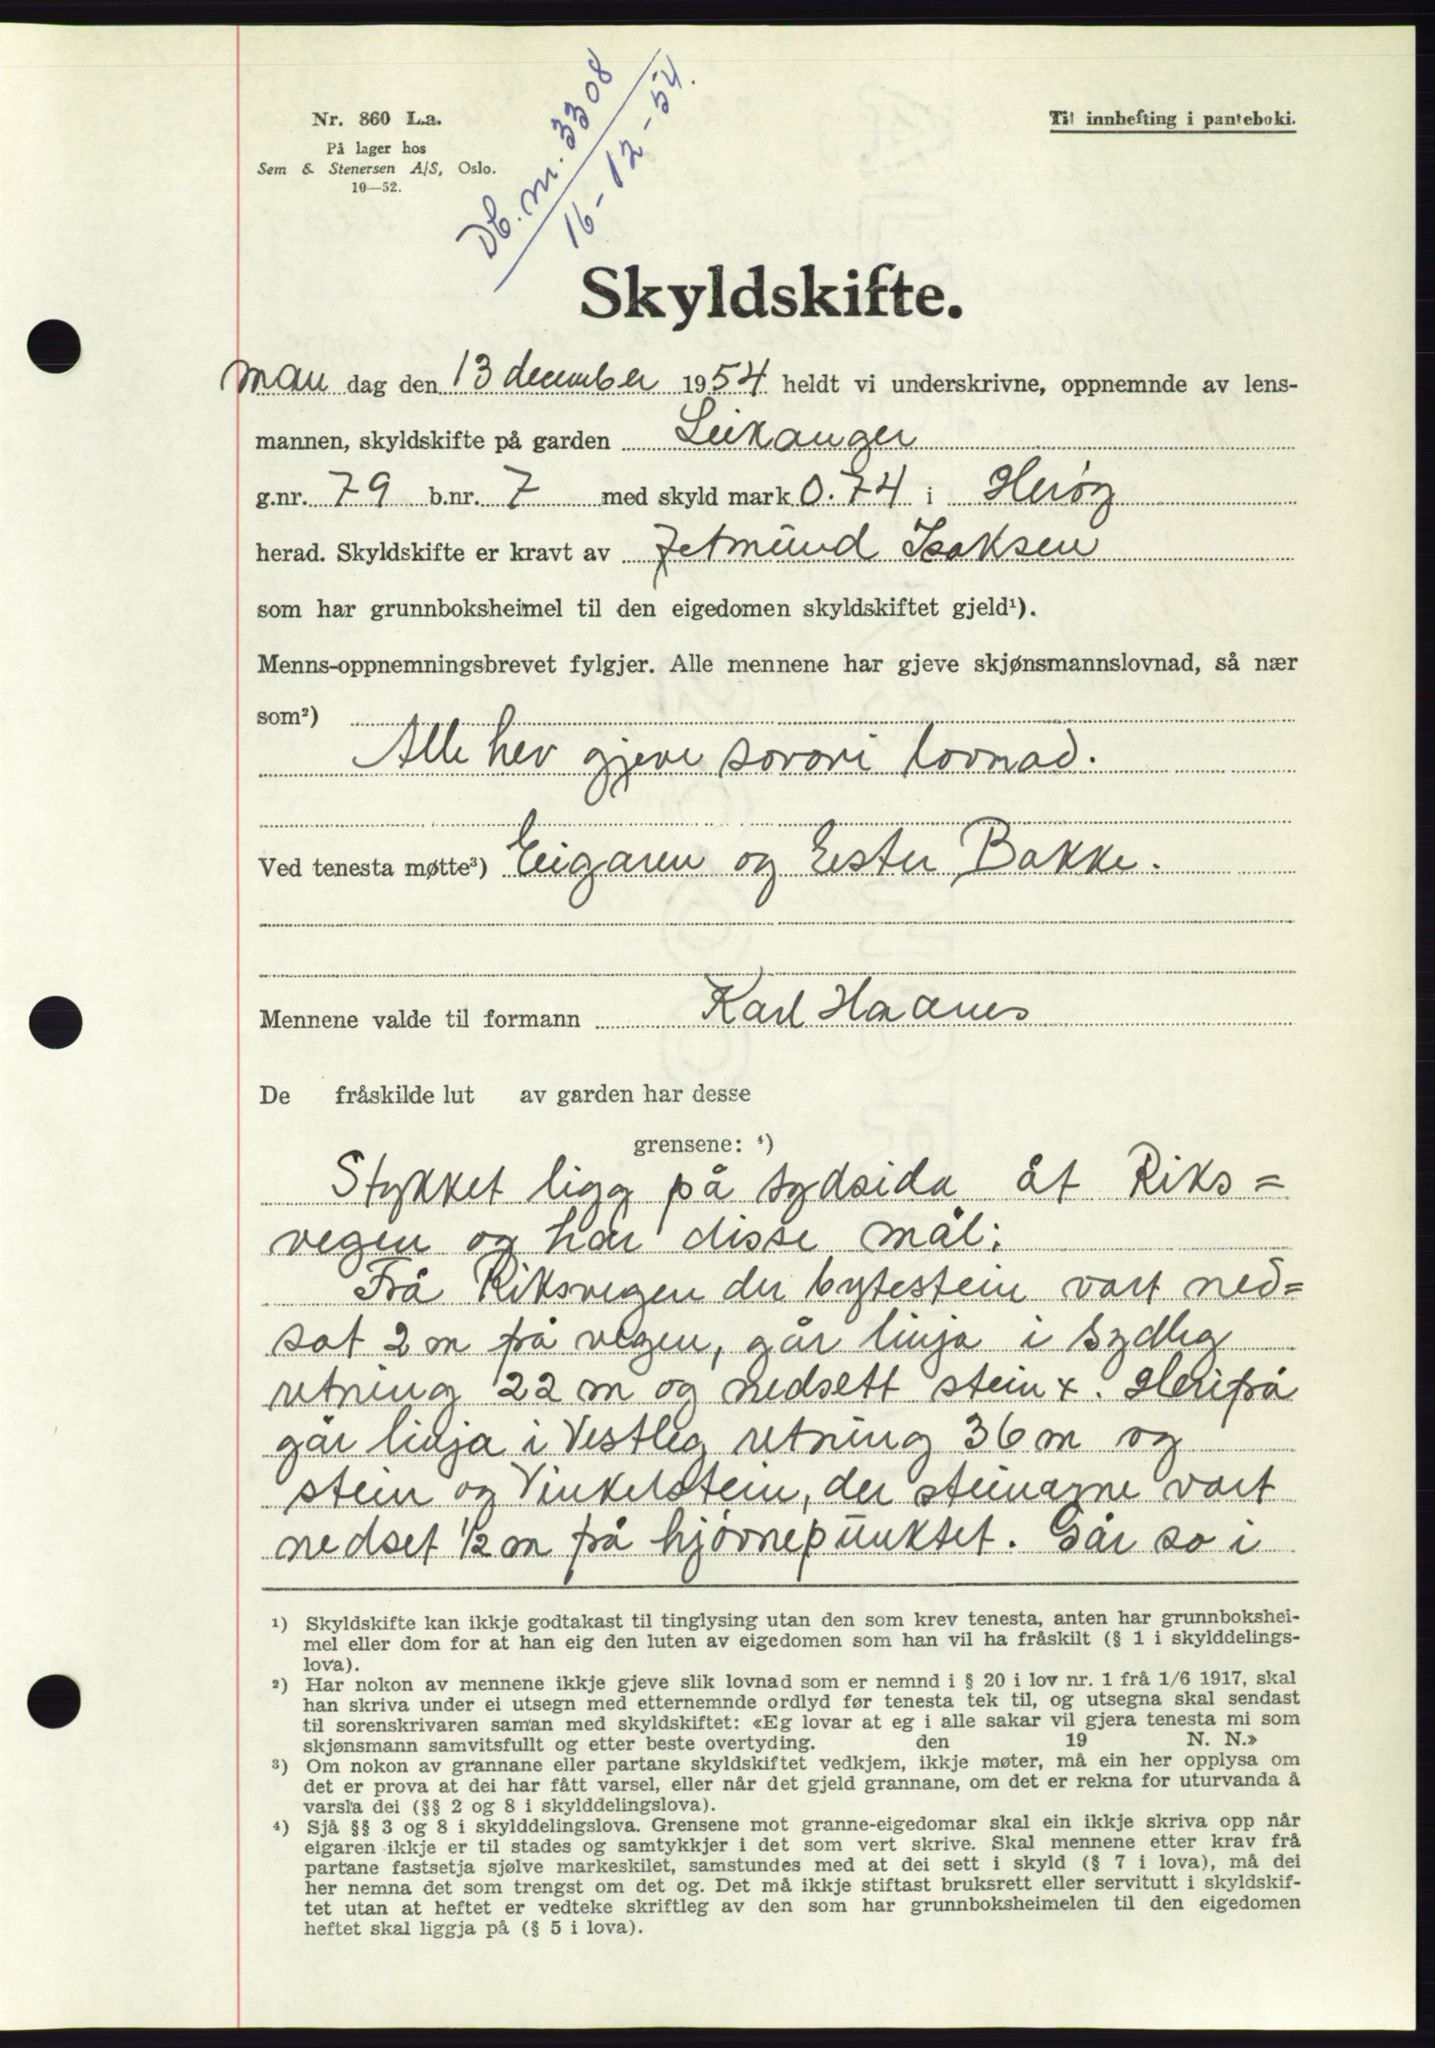 Nr. 860 L.a.
På lager hos
Sem & Stenersen A/S, Oslo.
10—52.
Db. nr. 3308
16-12-54.
Til innhefting i panteboki.
Skyldskifte.
man dag den 13 december 1954 heldt vi underskrivne, oppnemnde av lens-
mannen, skyldskifte på garden Leikanger
g.nr. 79 b.nr. 7 med skyld mark 0.74 i Herøy
herad. Skyldskifte er kravt av Jetmund Isaksen
som har grunnboksheimel til den eigedomen skyldskiftet gjeld¹).
Menns-oppnemningsbrevet fylgjer. Alle mennene har gjeve skjønsmannslovnad, så nær
som²)
Alle hev gjeve sovori lovnad.
Ved tenesta møtte³) Eigaren og Ester Bakke.
Mennene valde til formann Karl Haanes
De fråskilde lut av garden har desse
grensene: ⁴)
Stykket ligg på sydsida åt Riks=
vegen og har disse mål:
Frå Riksvegen der bytestein vart ned=
sat 2 m frå vegen, går linja i sydleg
retning 22 m og nedsett stein x. Herifrå
går linja i Vestleg retning 36 m og
stein og Vinkelstein, der steinane vart
nedset 1/2 m frå hjørnepunktet. Går so i
¹) Skyldskifte kan ikkje godtakast til tinglysing utan den som krev tenesta, anten har grunnbokshei-
mel eller dom for at han eig den luten av eigedomen som han vil ha fråskilt (§ 1 i skylddelings-
lova).
²) Har nokon av mennene ikkje gjeve slik lovnad som er nemnd i § 20 i lov nr. 1 frå 1/6 1917, skal
han skriva under ei utsegn med etternemnde ordlyd før tenesta tek til, og utsegna skal sendast
til sorenskrivaren saman med skyldskiftet: «Eg lovar at eg i alle sakar vil gjera tenesta mi som
skjønsmann samvitsfullt og etter beste overtyding. den 19 N. N.»
³) Om nokon av grannane eller partane skyldskiftet vedkjem, ikkje møter, må ein her opplysa om
det er prova at dei har fått varsel, eller når det gjeld grannane, om det er rekna for uturvanda å
varsla dei (§§ 2 og 8 i skylddelingslova).
⁴) Sjå §§ 3 og 8 i skylddelingslova. Grensene mot granne-eigedomar skal ein ikkje skriva opp når
eigaren ikkje er til stades og samtykkjer i det som vert skrive. Skal mennene etter krav frå
partane fastsetja sjølve markeskilet, samstundes med at dei sett i skyld (§ 7 i lova), må dei
her nemna det som trengst om det og. Det må ikkje stiftast bruksrett eller servitutt i skyldskif-
tet utan at heftet er vedteke skriftleg av den som har grunnboksheimelen til den eigedomen
heftet skal liggja på (§ 5 i lova).